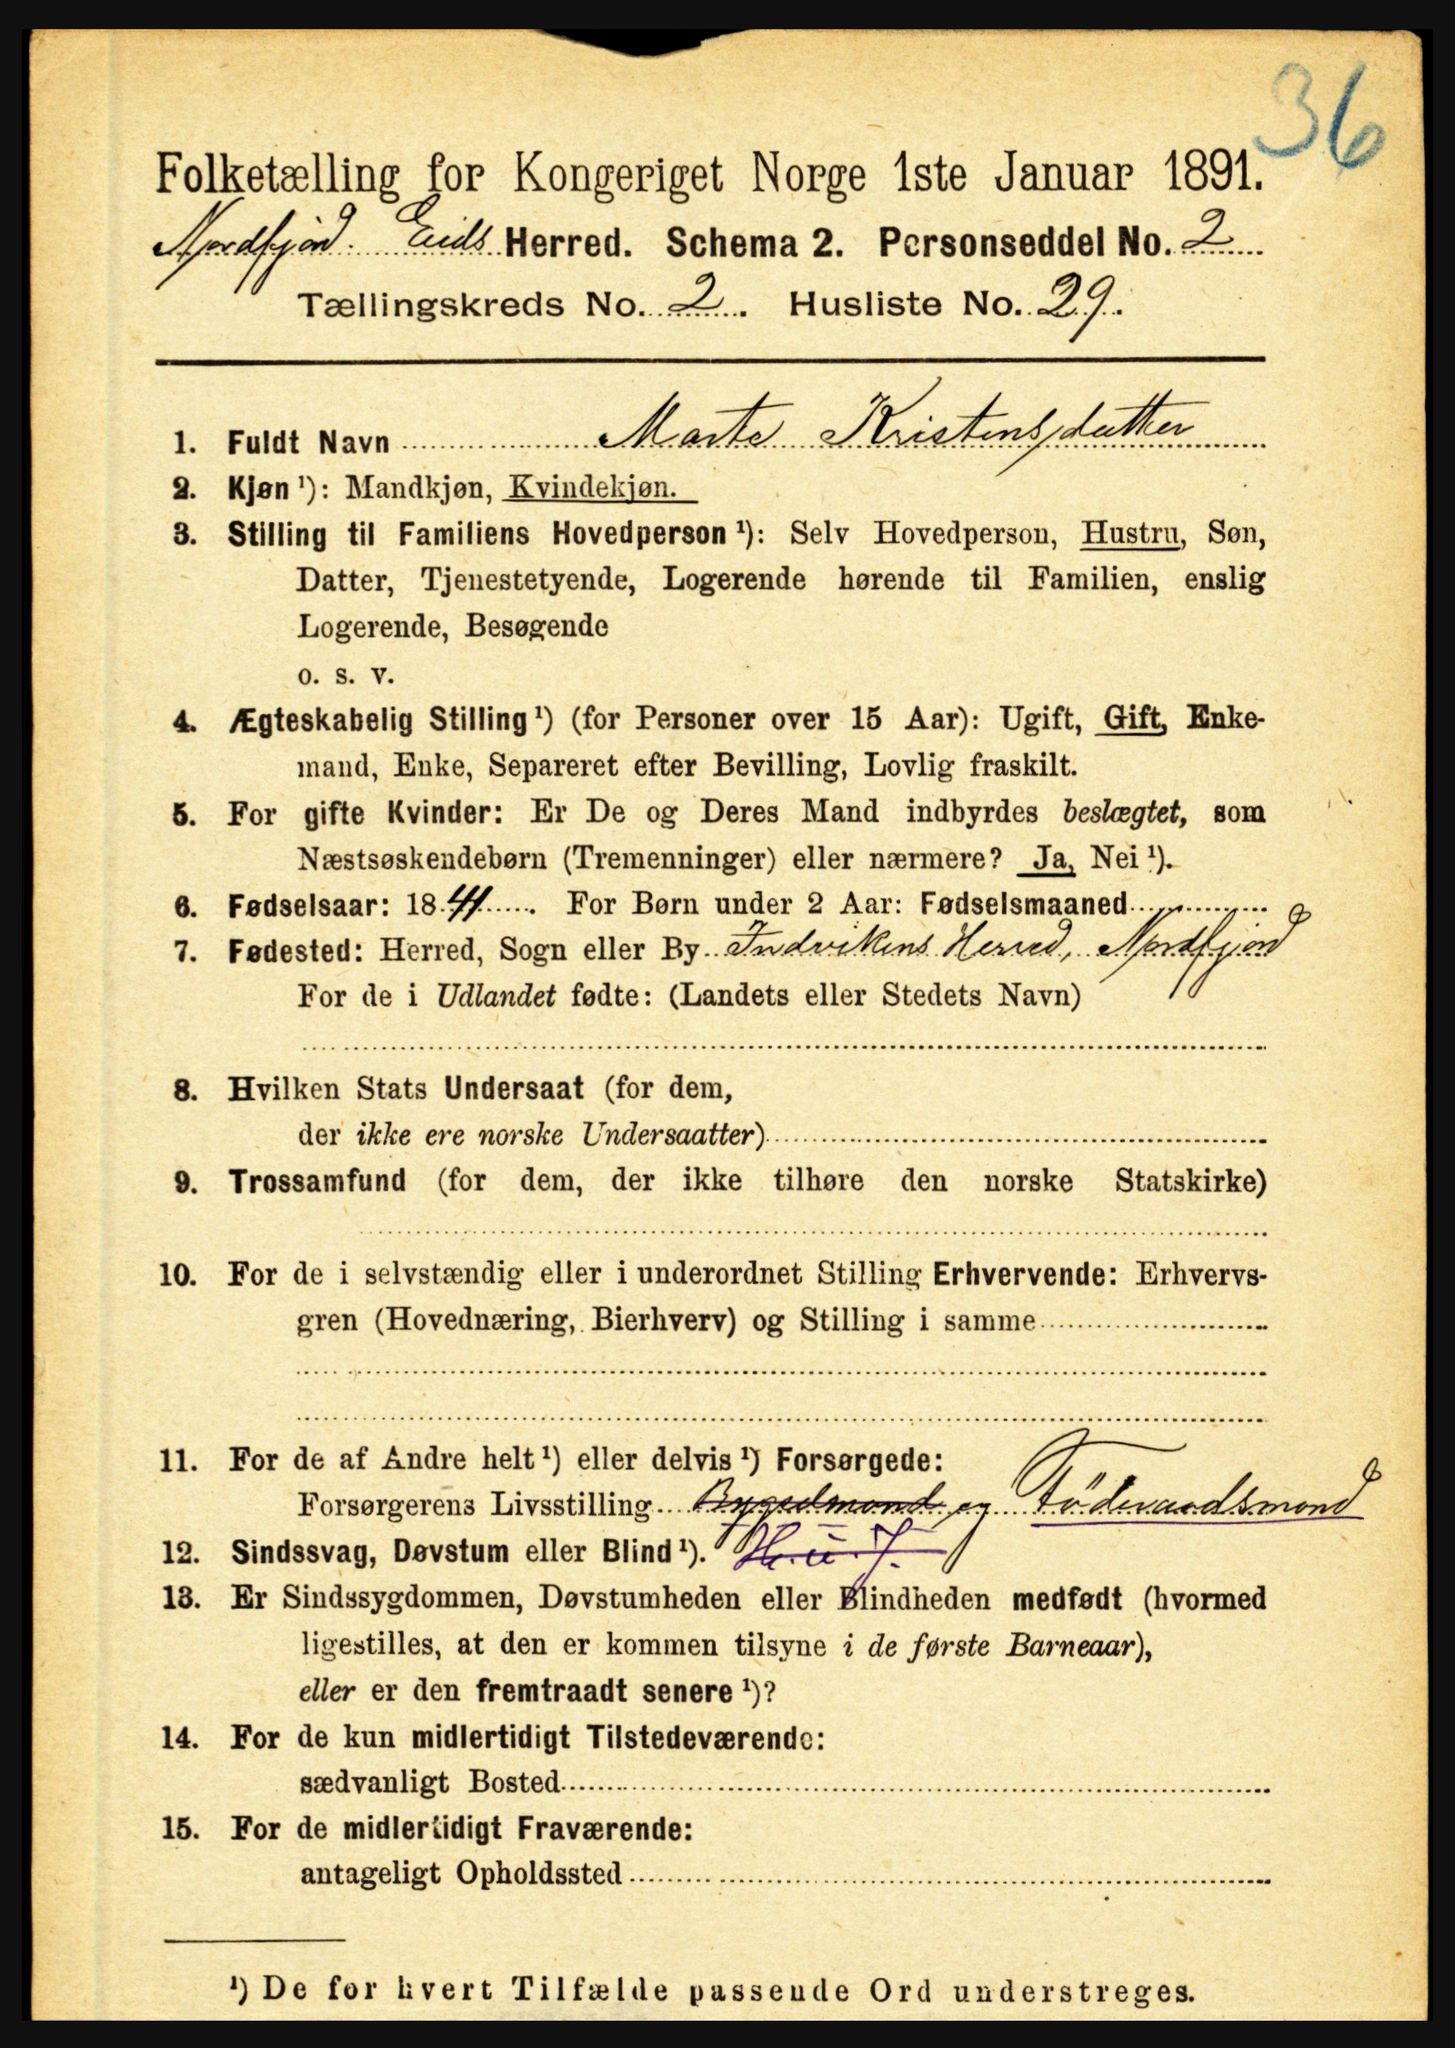 36
Folketælling for Kongeriget Norge 1ste Januar 1891.
Nordfjord. Eids Herred. Schema 2. Personseddel No. 2
Tællingskreds No. 2. Husliste No. 29.
1. Fuldt Navn Marte Kristensdatter
2. Kjøn ¹): Mandkjøn, Kvindekjøn.
3. Stilling til Familiens Hovedperson ¹): Selv Hovedperson, Hustru, Søn,
Datter, Tjenestetyende, Logerende hørende til Familien, enslig
Logerende, Besøgende
o. s. v.
4. Ægteskabelig Stilling ¹) (for Personer over 15 Aar): Ugift, Gift, Enke-
mand, Enke, Separeret efter Bevilling, Lovlig fraskilt.
5. For gifte Kvinder: Er De og Deres Mand indbyrdes beslægtet, som
Næstsøskendebørn (Tremenninger) eller nærmere? Ja, Nei ¹).
6. Fødselsaar: 1841. For Børn under 2 Aar: Fødselsmaaned
7. Fødested: Herred, Sogn eller By Indvikens Herred, Nordfjord
For de i Udlandet fødte: (Landets eller Stedets Navn)
8. Hvilken Stats Undersaat (for dem,
der ikke ere norske Undersaatter)
9. Trossamfund (for dem, der ikke tilhøre den norske Statskirke)
10. For de i selvstændig eller i underordnet Stilling Erhvervende: Erhvervs-
gren (Hovednæring, Bierhverv) og Stilling i samme
11. For de af Andre helt ¹) eller delvis ¹) Forsørgede:
Forsørgerens Livsstilling Bygselmand og Föderaadsmand
12. Sindssvag, Døvstum eller Blind ¹). H. u. J.
13. Er Sindssygdommen, Døvstumheden eller Blindheden medfødt (hvormed
ligestilles, at den er kommen tilsyne i de første Barneaar),
eller er den fremtraadt senere ¹)?
14. For de kun midlertidigt Tilstedeværende:
sædvanligt Bosted
15. For de midlertidigt Fraværende:
antageligt Opholdssted
¹) De for hvert Tilfælde passende Ord understreges.